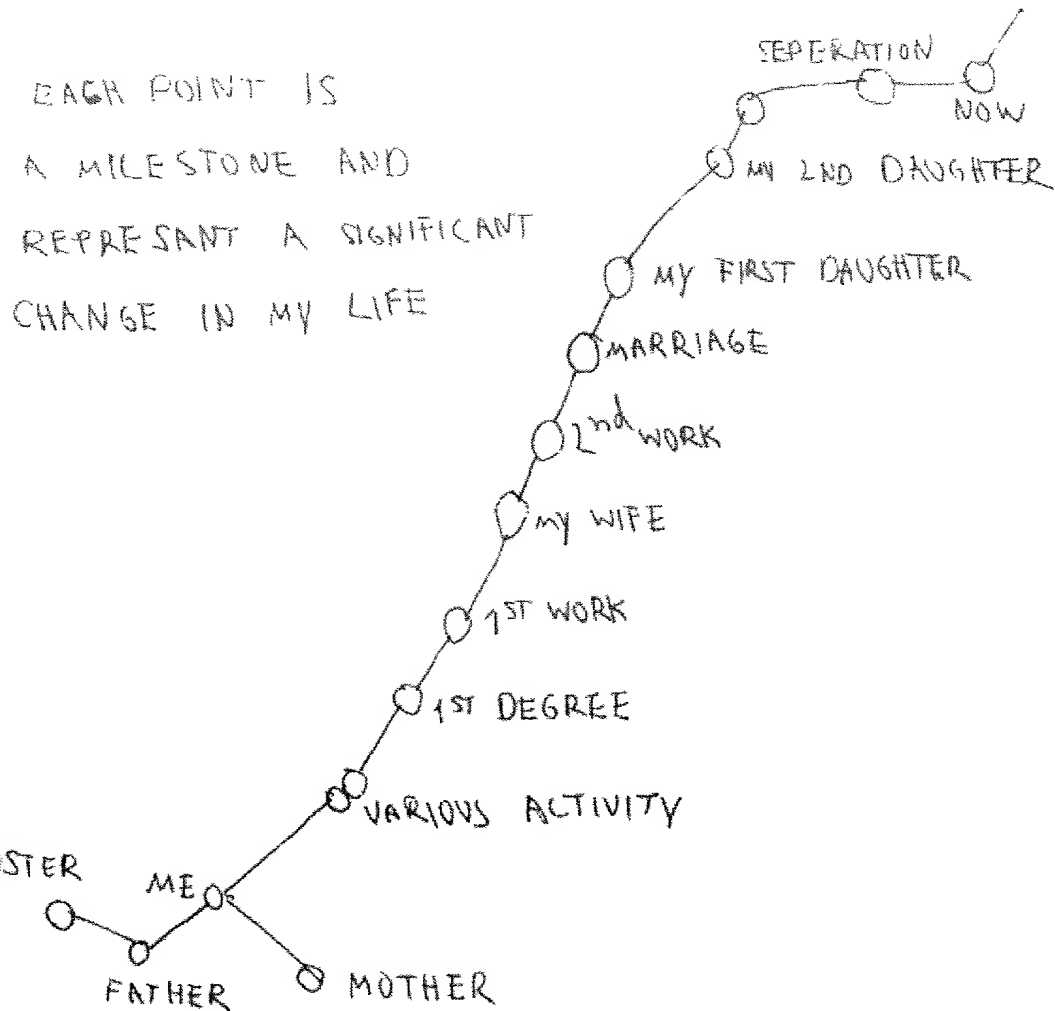 EACH POINT IS
A MILESTONE AND
REPRESANT A SIGNIFICANT
CHANGE IN MY LIFE
SEPERATION
NOW
MY 2ND DAUGHTER
MY FIRST DAUGHTER
MARRIAGE
2nd WORK
MY WIFE
1ST WORK
1ST DEGREE
VARIOUS ACTIVITY
ME
FATHER
MOTHER